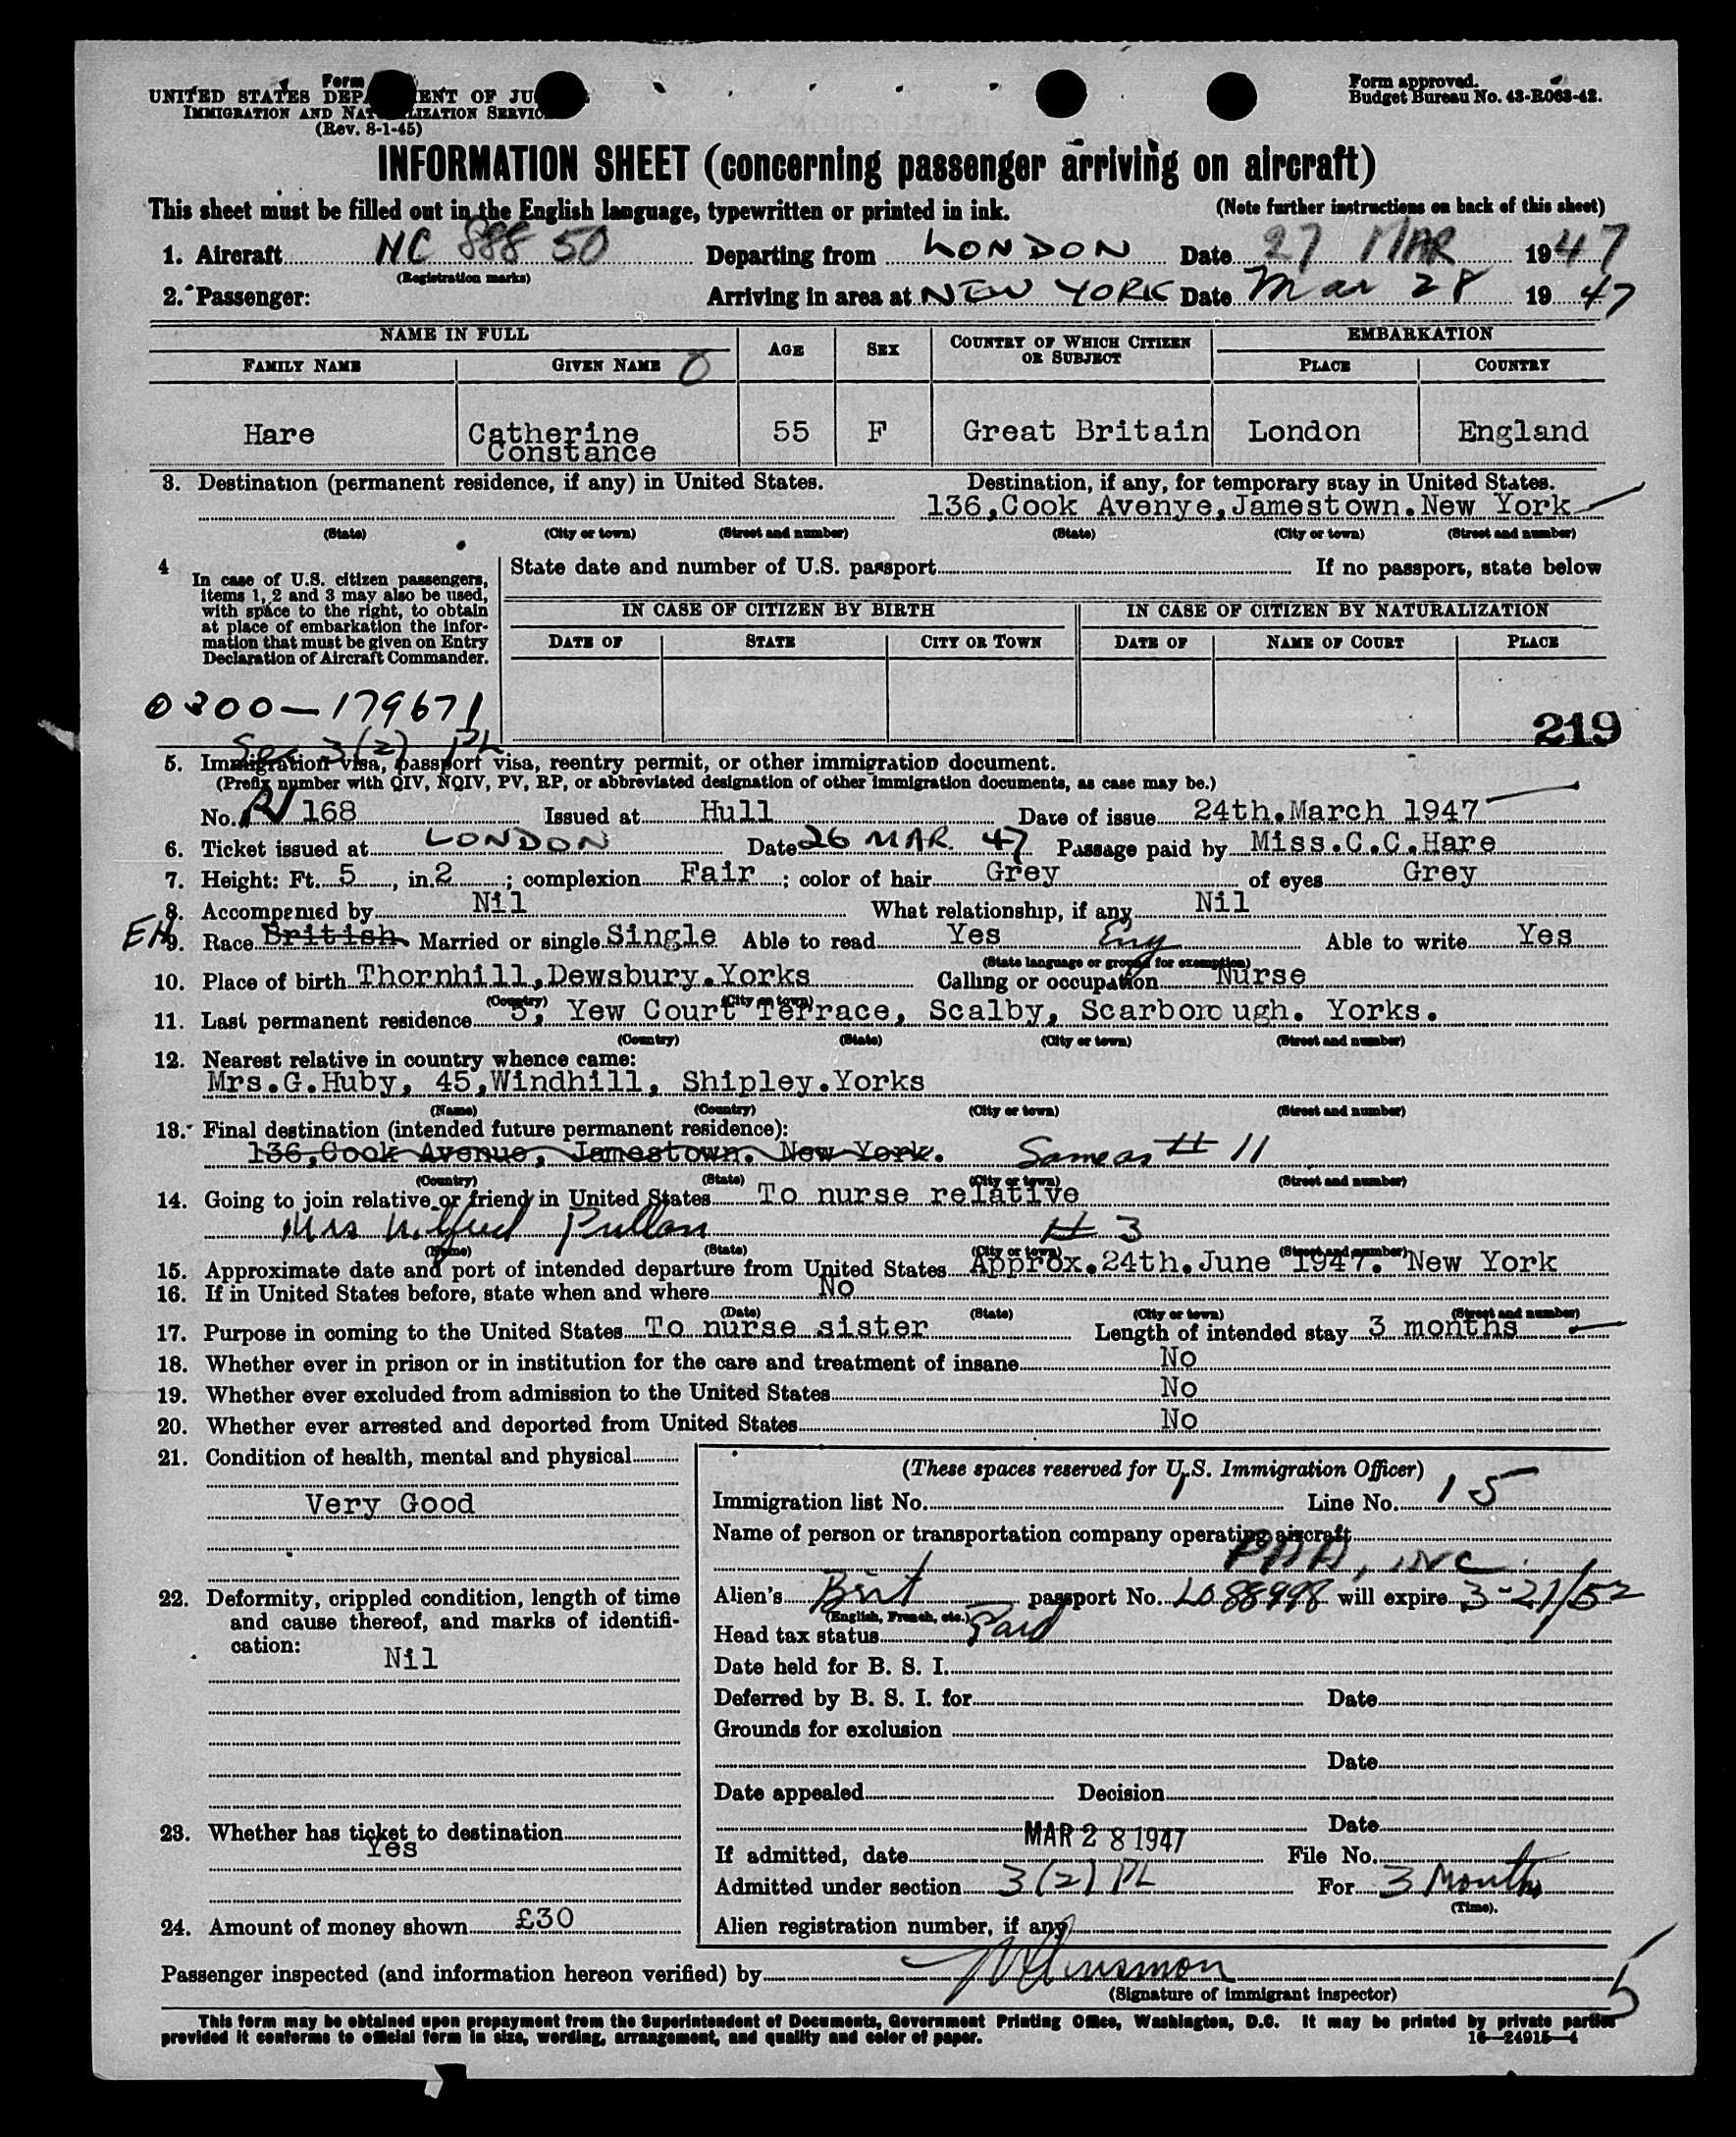 Form
UNITED STATES DEP ENT OF JU
IMMIGRATION AND NAT LIZATION SERVIC
(Rev. 8-1-45)
Form approved.
Budget Bureau No. 43-R063-42.
INFORMATION SHEET (concerning passenger arriving on aircraft)
This sheet must be filled out in the English language, typewritten or printed in ink.
(Note further instructions on back of this sheet)
1. Aircraft NC 88850 Departing from LONDON Date 27 MAR 1947
(Registration marks)
2. Passenger: Arriving in area at NEW YORK Date Mar 28 1947
NAME IN FULL AGE SEX COUNTRY OF WHICH CITIZEN OR SUBJECT EMBARKATION
FAMILY NAME GIVEN NAME PLACE COUNTRY
Hare Catherine Constance 55 F Great Britain London England
3. Destination (permanent residence, if any) in United States. Destination, if any, for temporary stay in United States.
136,Cook Avenye,Jamestown.New York
(State) (City or town) (Street and number) (State) (City or town) (Street and number)
4 In case of U.S. citizen passengers,
items 1, 2 and 3 may also be used,
with space to the right, to obtain
at place of embarkation the infor-
mation that must be given on Entry
Declaration of Aircraft Commander.
State date and number of U.S. passport If no passport, state below
IN CASE OF CITIZEN BY BIRTH IN CASE OF CITIZEN BY NATURALIZATION
DATE OF STATE CITY OR TOWN DATE OF NAME OF COURT PLACE
0300-179671
219
Sec 3(2) PL
5. Immigration visa, passport visa, reentry permit, or other immigration document.
(Prefix number with QIV, NQIV, PV, RP, or abbreviated designation of other immigration documents, as case may be.)
No. PV 168 Issued at Hull Date of issue 24th.March 1947
6. Ticket issued at LONDON Date 26 MAR. 47 Passage paid by Miss.C.C.Hare
7. Height: Ft. 5, in. 2; complexion Fair; color of hair Grey of eyes Grey
8. Accompenied by Nil What relationship, if any Nil
9. Race British Married or single Single Able to read Yes Eng Able to write Yes
(State language or ground for exemption)
10. Place of birth Thornhill,Dewsbury.Yorks Calling or occupation Nurse
(Country) (City or town)
11. Last permanent residence 5, Yew Court Terrace, Scalby, Scarborough. Yorks.
(Country) (State) (City or town) (Street and number)
12. Nearest relative in country whence came:
Mrs.G.Huby, 45,Windhill, Shipley.Yorks
(Name) (Country) (City or town) (Street and number)
13. Final destination (intended future permanent residence):
136,Cook Avenue, Jamestown. New York. Same as # 11
(Country) (State) (City or town) (Street and number)
14. Going to join relative or friend in United States To nurse relative
Mrs Wilfred Pullan # 3
(Name) (State) (City or town) (Street and number)
15. Approximate date and port of intended departure from United States Approx.24th.June 1947. New York
16. If in United States before, state when and where No
(Date) (State) (City or town) (Street and number)
17. Purpose in coming to the United States To nurse sister Length of intended stay 3 months
18. Whether ever in prison or in institution for the care and treatment of insane No
19. Whether ever excluded from admission to the United States No
20. Whether ever arrested and deported from United States No
21. Condition of health, mental and physical
Very Good
22. Deformity, crippled condition, length of time
and cause thereof, and marks of identifi-
cation:
Nil
23. Whether has ticket to destination
Yes
24. Amount of money shown £30
(These spaces reserved for U.S. Immigration Officer)
Immigration list No. Line No. 15
Name of person or transportation company operating aircraft
PAA, INC.
Alien's Brit passport No. LO88998 will expire 3-21/52
(English, French, etc.)
Head tax status Paid
Date held for B. S. I.
Deferred by B. S. I. for Date
Grounds for exclusion
Date
Date appealed Decision
Date
If admitted, date MAR 28 1947 File No.
Admitted under section 3(2) PL For 3 Months
(Time).
Alien registration number, if any
Passenger inspected (and information hereon verified) by
(Signature of immigrant inspector)
5
This form may be obtained upon prepayment from the Superintendent of Documents, Government Printing Office, Washington, D.C. It may be printed by private parties
provided it conforms to official form in size, wording, arrangement, and quality and color of paper. 16-24915-4